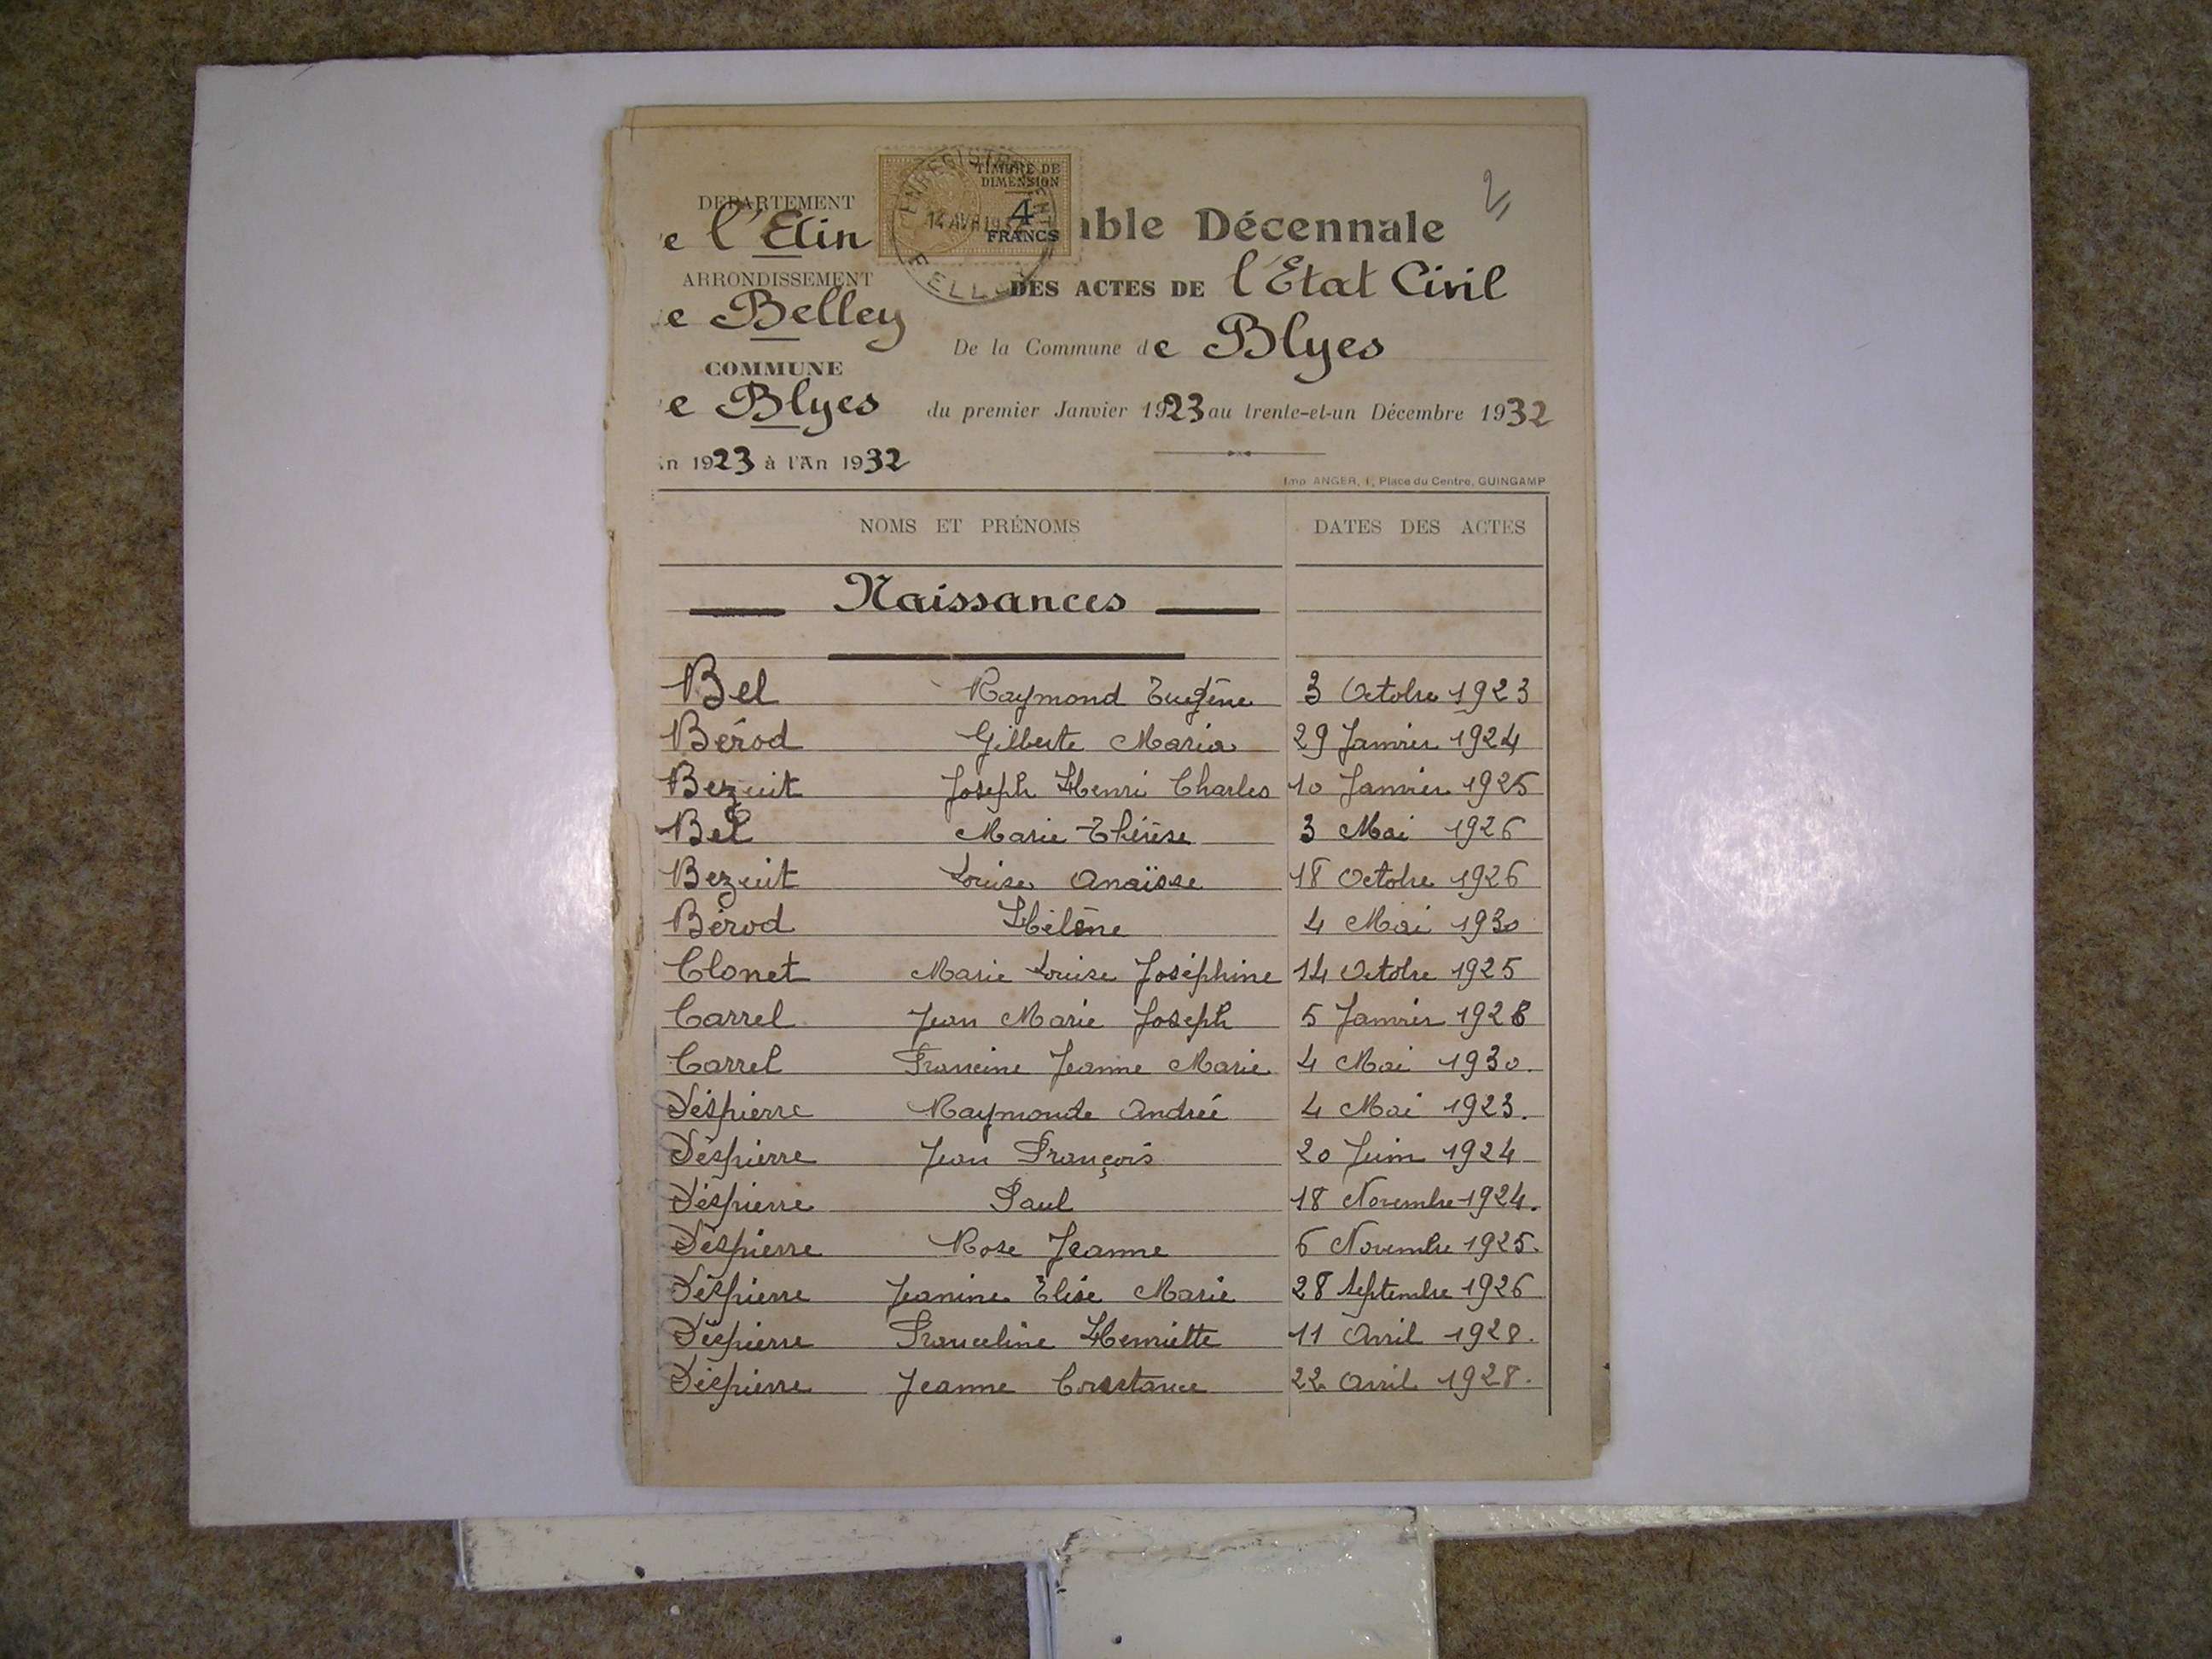 2
TIMBRE DE
DIMENSION
4
FRANCS
14 AVR
DEPARTEMENT
e l'Ain
ARRONDISSEMENT
e Belley
COMMUNE
e Blyes
n 1923 à l'An 1932
able Décennale
DES ACTES DE l'Etat Civil
De la Commune de Blyes
du premier Janvier 1923 au trente-et-un Décembre 1932
Imp. ANGER, 1, Place du Centre, GUINGAMP
NOMS ET PRÉNOMS DATES DES ACTES
Naissances
Bel Raymond Eugène 3 Octobre 1923
Bérod Gilberte Maria 29 Janvier 1924
Bezuit Joseph Henri Charles 10 Janvier 1925
Bel Marie Thérèse 3 Mai 1926
Bezuit Louise Anaïsse 18 Octobre 1926
Bérod Hélène 4 Mai 1930
Clonet Marie Louise Joséphine 14 Octobre 1925
Carrel Jean Marie Joseph 5 Janvier 1928
Carrel Francine Jeanne Marie 4 Mai 1930.
Déspierre Raymonde Andrée 4 Mai 1923.
Déspierre Jean François 20 Juin 1924
Déspierre Paul 18 Novembre 1924.
Déspierre Rose Jeanne 6 Novembre 1925.
Déspierre Jeanine Elise Marie 28 Septembre 1926
Déspierre Franceline Henriette 11 Avril 1928.
Déspierre Jeanne Constance 22 Avril 1928.